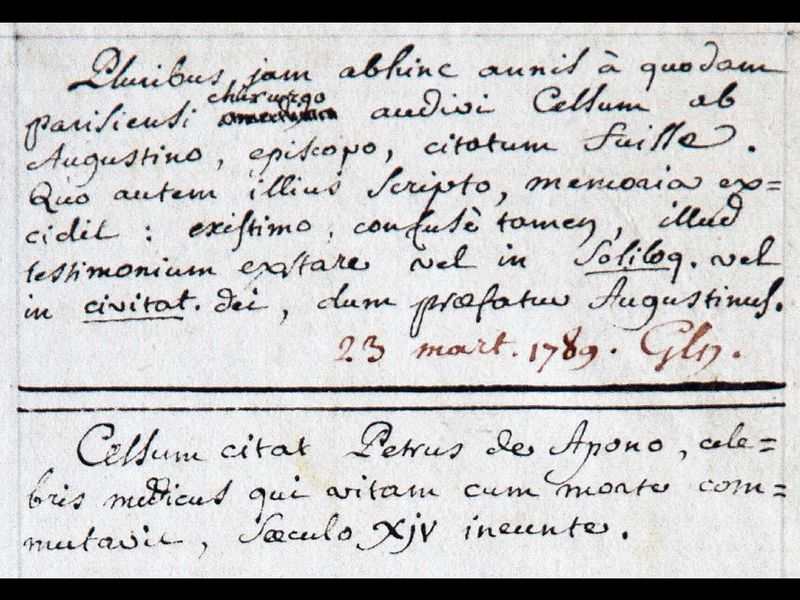 Pluribus jam abhinc annis à quodam
parisiensi chirurgo audivi Celsum ab
Augustino, episcopo, citatum fuisse.
Quo autem illius scripto, memoria ex=
cidit : existimo, confusè tamen, illud
testimonium exstare vel in Soliloq. vel
in civitat. dei, dum præfatur Augustinus.
23 mart. 1789.
Celsum citat Petrus de Apono, cele=
bris medicus qui vitam cum morte com=
mutavit, sæculo xjv ineunte.